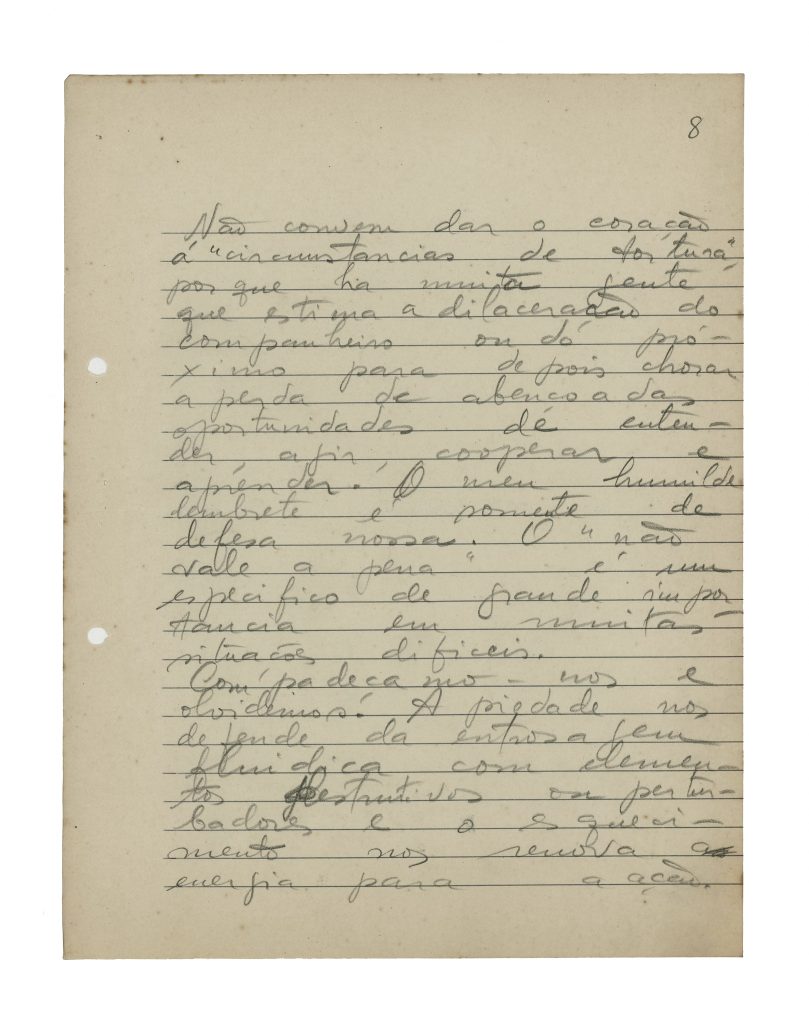 8
Não convem dar o coração
á "circunstancias de tortura"
porque ha muita gente
que estima a dilaceração do
companheiro ou do pró-
ximo para depois chorar
a perda de abençoadas
oportunidades de enten-
der, agir, cooperar e
aprender. O meu humilde
lembrete é somente de
defesa nossa. O "não
vale a pena" é um
especifico de grande impor
tancia em muitas
situações dificeis.
Compadeçamo-nos e
olvidemos! A piedade nos
defende da entrosagem
fluidica com elemen-
tos destrutivos ou pertur-
badores e o esqueci-
mento nos renova a
energia para a ação.